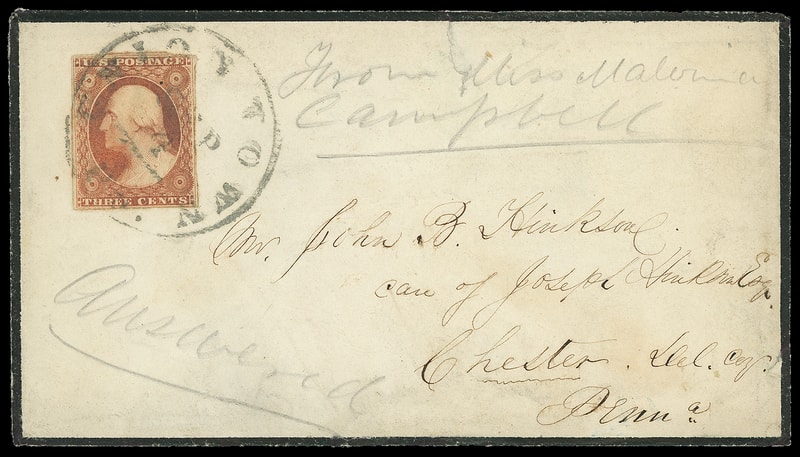 U.S. POSTAGE
THREE CENTS
TOWN
From Miss Malvina
Campbell
Mr. John B. Hinkson.
care of Joseph Hinkson Esq.
Chester. Del. Coy.
Penna
Answered